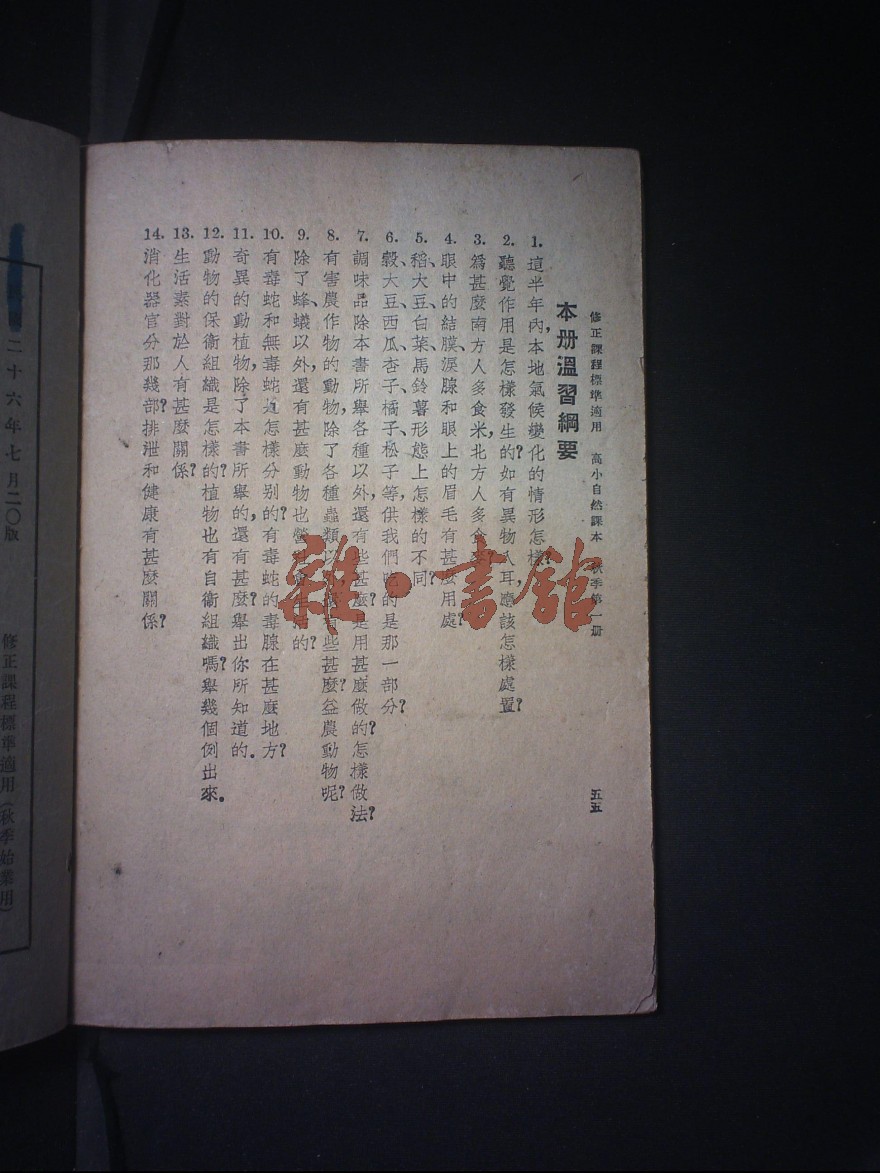 修正課程標準適用 高小自然課本 秋季第一册
五五
本册溫習綱要
1. 這半年內，本地氣候變化的情形怎樣？
2. 聽覺作用是怎樣發生的？如有異物入耳，應該怎樣處置？
3. 爲甚麼南方人多食米，北方人多食
4. 眼中的結膜、淚腺和眼上的眉毛有甚麼用處？
5. 稻、大豆、白菜、馬鈴薯形態上怎樣的不同？
6. 穀、大豆、西瓜、杏子、橘子、松子等，供我們吃的是那一部分？
7. 調味品除本書所舉各種以外，還有些甚麼？是用甚麼做的？怎樣做法？
8. 有害農作物的動物，除了各種蟲類以 些甚麼？益農動物呢？
9. 除了蜂、蟻以外，還有甚麼動物也營 的？
10. 有毒蛇和無毒蛇是怎樣分别的？有毒蛇的毒腺在甚麼地方？
11. 奇異的動植物，除了本書所舉的，還有甚麼？舉出你所知道的。
12. 動物的保衞組織是怎樣的？植物也有自衞組織嗎？舉幾個例出來。
13. 生活素對於人有甚麼關係？
14. 消化器官分那幾部？排泄和健康有甚麼關係？
雜·書館
二十六年七月二〇版
修正課程標準適用（秋季始業用）